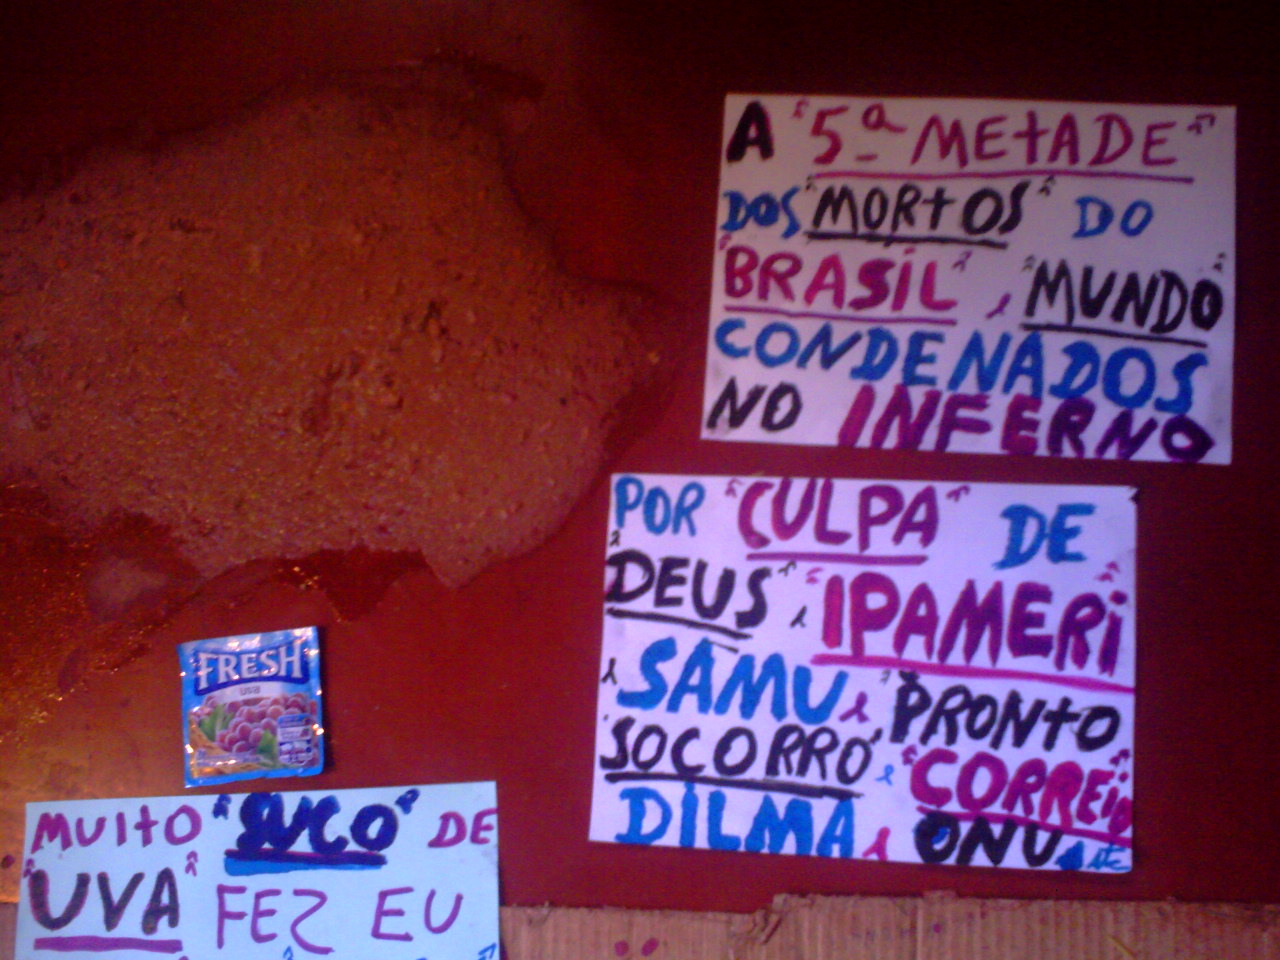 A "5ª METADE"
DOS "MORTOS" DO
"BRASIL" e "MUNDO"
CONDENADOS
NO INFERNO
POR "CULPA" DE
"DEUS" e "IPAMERI"
e SAMU e "PRONTO
SOCORRO" e "CORREIO"
DILMA e ONU e etc
FRESH
uva
MUITO "SUCO" DE
"UVA" FEZ EU